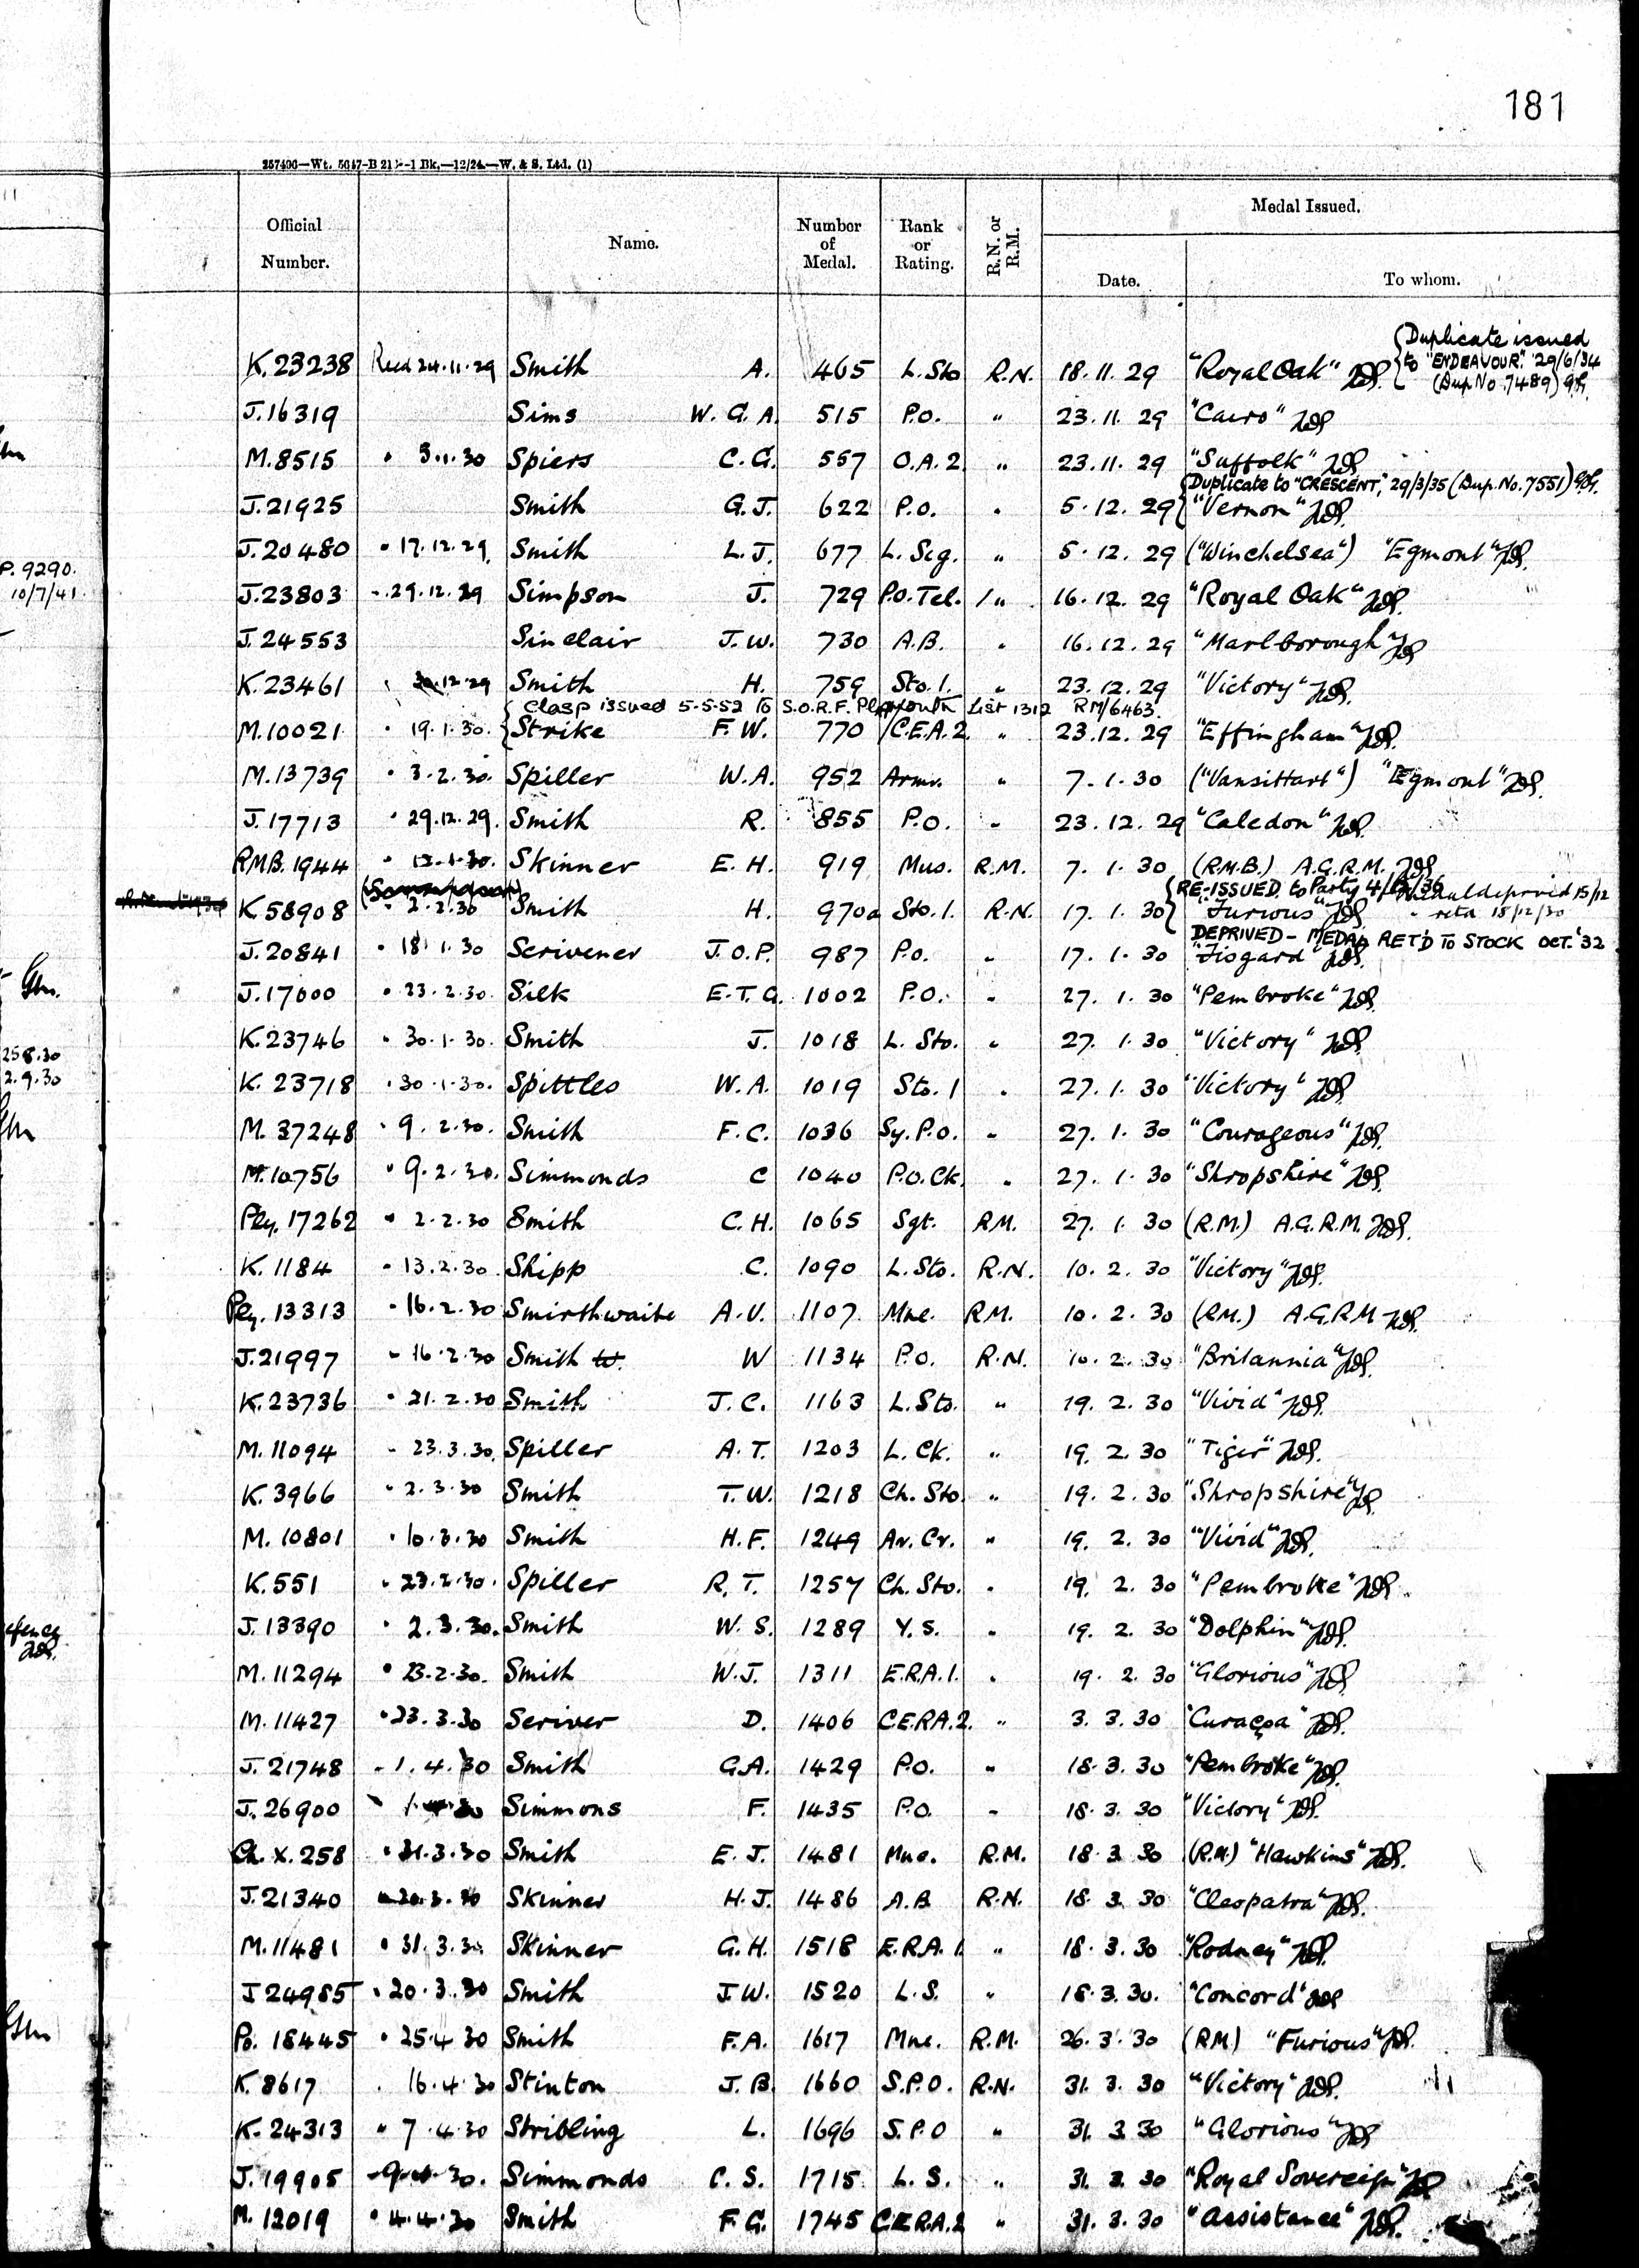 181
257400—Wt. 5647-B 215—1 Bk.—12/24.—W. & S. Ltd. (1)
Official Number. Name. Number of Medal. Rank or Rating. R.N. or R.M. Medal Issued.
Date. To whom.
{Duplicate issued
K.23238 Recd 24.11.29 Smith A. 465 L.Sto R.N. 18.11.29 "Royal Oak" to "ENDEAVOUR" 29/6/34
(Dup No 7489)
J.16319 Sims W. G. A. 515 P.O. " 23.11.29 "Cairo"
M.8515 " 3.1.30 Spiers C.G. 557 O.A.2 " 23.11.29 "Suffolk"
{Duplicate to "CRESCENT," 29/3/35 (Dup. No. 7551)
J.21925 Smith G.J. 622 P.O. " 5.12.29 "Vernon"
J.20480 " 17.12.29 Smith L.J. 677 L.Sig. " 5.12.29 ("Winchelsea") "Egmont"
P. 9290.
10/7/41
J.23803 " 29.12.29 Simpson J. 729 P.O.Tel. " 16.12.29 "Royal Oak"
J.24553 Sinclair J.W. 730 A.B. " 16.12.29 "Marlborough"
K.23461 " 30.12.29 Smith H. 759 Sto.1. " 23.12.29 "Victory"
{Clasp issued 5-5-52 to S.O.R.F. Plymouth List 1312 RM/6463.
M.10021 " 19.1.30. Strike F.W. 770 C.E.A.2 " 23.12.29 "Effingham"
M.13739 " 3.2.30. Spiller W.A. 952 Armr. " 7.1.30 ("Vansittart") "Egmont"
J.17713 " 29.12.29. Smith R. 855 P.O. " 23.12.29 "Caledon"
RMB.1944 " 13.1.30. Skinner E.H. 919 Mus. R.M. 7.1.30 (R.M.B.) A.G.R.M.
{RE-ISSUED to Party
K.58908 " 2.2.30 Smith H. 970a Sto.1. R.N. 17.1.30 "Furious" 15/12/30
DEPRIVED – MEDAL RET'D TO STOCK OCT. '32
J.20841 " 18.1.30 Scrivener J.O.P. 987 P.O. " 17.1.30 "Fisgard"
J.17000 " 23.2.30. Silk E.T.G. 1002 P.O. " 27.1.30 "Pembroke"
K.23746 " 30.1.30. Smith J. 1018 L.Sto. " 27.1.30 "Victory"
2.9.30
K.23718 " 30.1.30. Spittles W.A. 1019 Sto.1 " 27.1.30 "Victory"
M.37248 " 9.2.30. Smith F.C. 1036 Sy.P.O. " 27.1.30 "Courageous"
M.10756 " 9.2.30. Simmonds C 1040 P.O.Ck. " 27.1.30 "Shropshire"
Ply.17262 " 2.2.30 Smith C.H. 1065 Sgt. RM. 27.1.30 (R.M.) A.G.R.M.
K.1184 " 13.2.30. Shipp C. 1090 L.Sto. R.N. 10.2.30 "Victory"
Ply.13313 " 16.2.30 Smirthwaite A.V. 1107 Mne. RM. 10.2.30 (RM.) A.G.R.M
J.21997 " 16.2.30 Smith W. W 1134 P.O. R.N. 10.2.30 "Britannia"
K.23736 " 21.2.30 Smith J.C. 1163 L.Sto. " 19.2.30 "Vivid"
M.11094 " 23.3.30. Spiller A.T. 1203 L.Ck. " 19.2.30 "Tiger"
K.3966 " 2.3.30 Smith T.W. 1218 Ch.Sto. " 19.2.30 "Shropshire"
M.10801 " 10.3.30 Smith H.F. 1249 Ar.Cr. " 19.2.30 "Vivid"
K.551 " 23.2.30. Spiller R.T. 1257 Ch.Sto. " 19.2.30 "Pembroke"
J.13390 " 2.3.30. Smith W.S. 1289 Y.S. " 19.2.30 "Dolphin"
M.11294 " 23.2.30. Smith W.J. 1311 E.R.A.1. " 19.2.30 "Glorious"
M.11427 " 23.3.30 Scriver D. 1406 C.E.R.A.2. " 3.3.30 "Curaçoa"
J.21748 " 1.4.30 Smith G.A. 1429 P.O. " 18.3.30 "Pembroke"
J.26900 " 1.4.30 Simmons F. 1435 P.O. " 18.3.30 "Victory"
Ch.X.258 " 31.3.30 Smith E.J. 1481 Mne. R.M. 18.3.30 (R.M.) "Hawkins"
J.21340 Skinner H.J. 1486 A.B. R.N. 18.3.30 "Cleopatra"
M.11481 " 31.3.30 Skinner G.H. 1518 E.R.A.1. " 18.3.30 "Rodney"
J24985 " 20.3.30 Smith J.W. 1520 L.S. " 18.3.30. "Concord"
Po.18445 " 25.4.30 Smith F.A. 1617 Mne. R.M. 26.3.30 (RM) "Furious"
K.8617 16.4.30 Stinton J.B. 1660 S.P.O. R.N. 31.3.30 "Victory"
K.24313 " 7.4.30 Stribling L. 1696 S.P.O " 31.3.30 "Glorious"
J.19905 Simmonds C.S. 1715 L.S. " 31.3.30 "Royal Sovereign"
M.12019 " 4.4.30 Smith F.G. 1745 C.E.R.A.2 " 31.3.30 "Assistance"